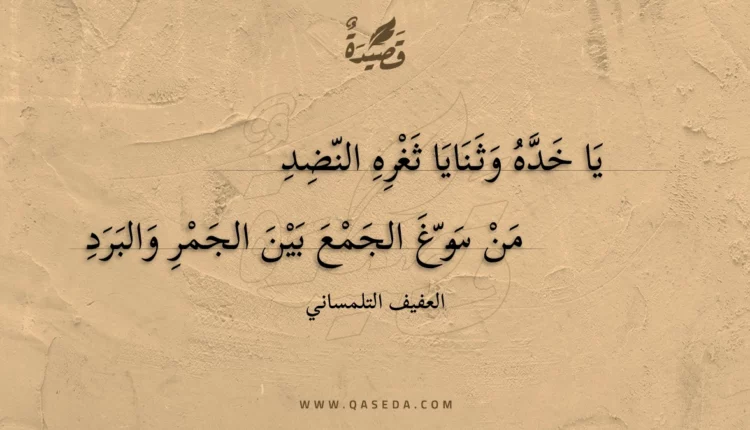 قَصِيدَةٌ
يَا خَدَّهُ وَثَنَايَا ثَغْرِهِ النّضِدِ
مَنْ سَوّغَ الجَمْعَ بَيْنَ الجَمْرِ وَالبَرَدِ
العفيف التلمساني
WWW.QASEDA.COM